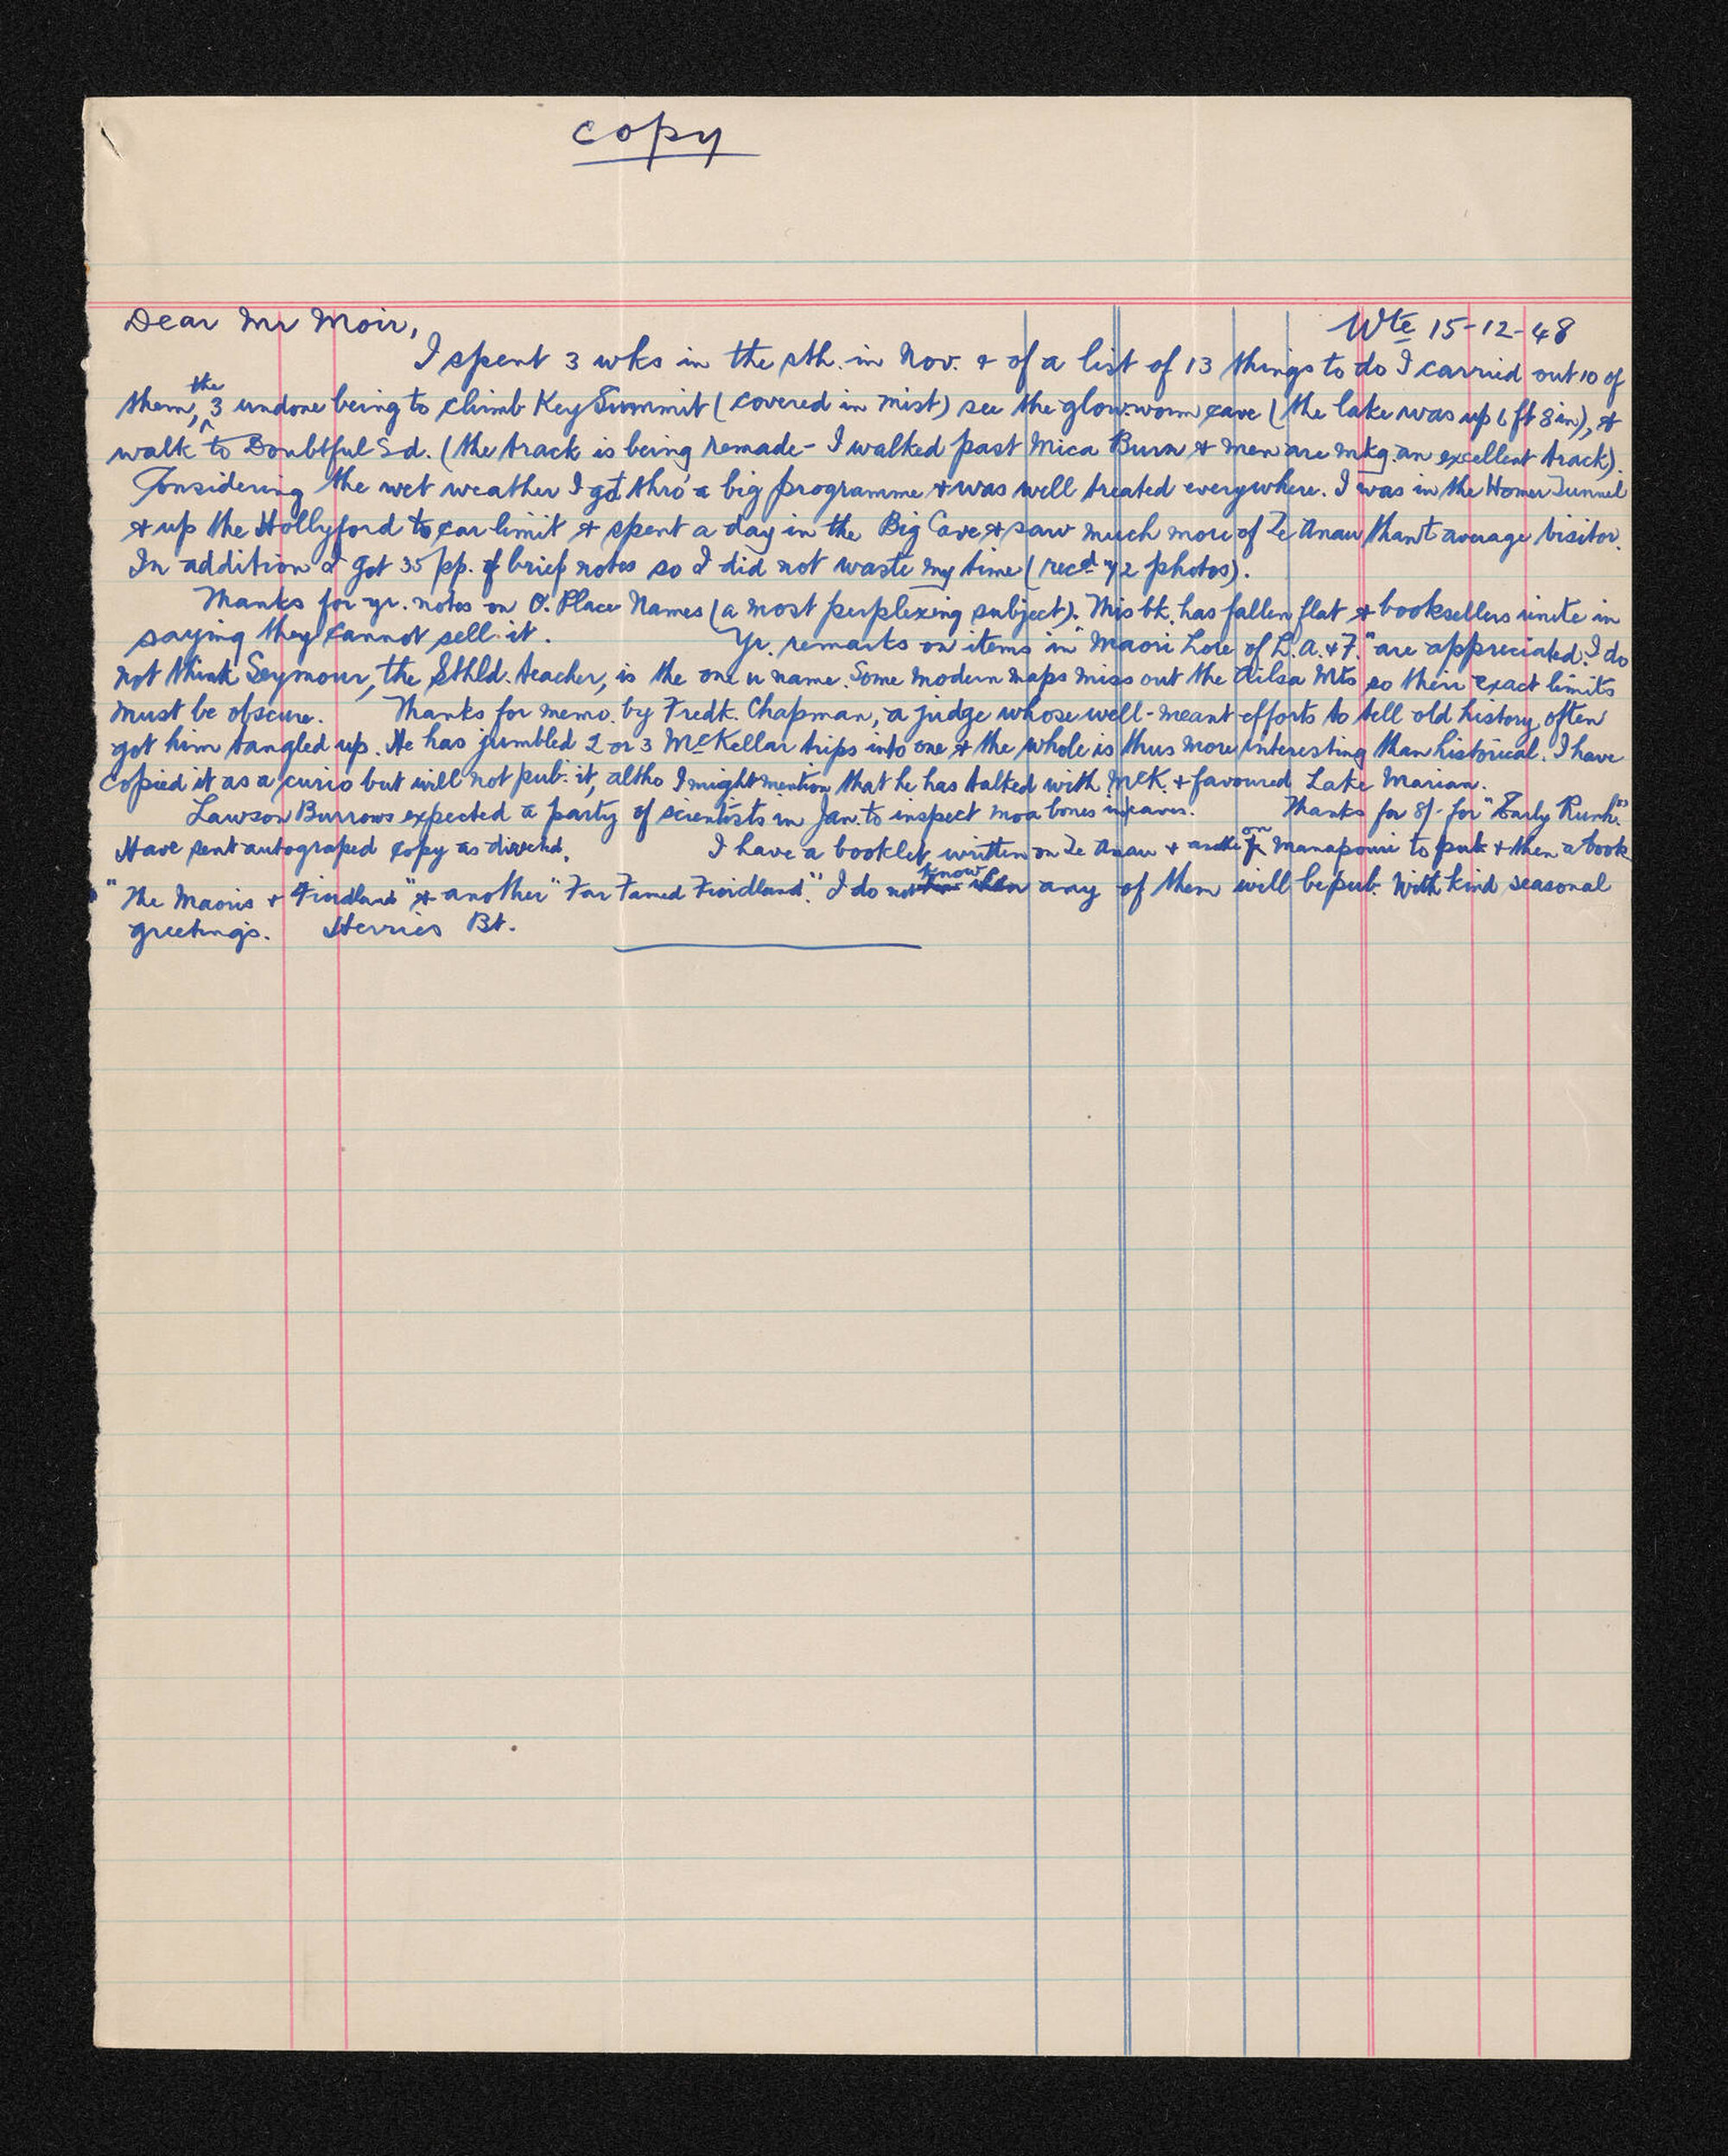 copy
Dear Mr Moir,
Wte 15-12-48
I spent 3 wks in the sth. in Nov. & of a list of 13 things to do I carried out 10 of
them, the 3 undone being to climb Key Summit (covered in mist) see the glow-worm cave (the lake was up 6 ft 8 in), &
walk to Doubtful Sd. (the track is being remade - I walked past Mica Burn & men are mkg. an excellent track).
Considering the wet weather I got thro' a big programme & was well treated everywhere. I was in the Homer Tunnel
& up the Hollyford to car limit & spent a day in the Big Cave & saw much more of Te Anau than t average visitor.
In addition I got 35 pp. of brief notes so I did not waste my time (recd. 42 photos).
Thanks for yr. notes on O. Place Names (a most perplexing subject). This bk. has fallen flat & booksellers unite in
saying they cannot sell it. Yr. remarks on items in "Maori Lore of L. A. & F." are appreciated. I do
not think Seymour, the Sthld. teacher, is the one u name. Some modern maps miss out the Ailsa Mts so their exact limits
must be obscure. Thanks for memo. by Fredk. Chapman, a judge whose well-meant efforts to tell old history, often
got him tangled up. He has jumbled 2 or 3 McKellar trips into one & the whole is thus more interesting than historical. I have
copied it as a curio but will not pub. it, altho I might mention that he has talked with McK. & favoured Lake Marian.
Lawson Burrows expected a party of scientists in Jan. to inspect moa bones in caves. Thanks for 8/- for "Early Runh."
Have sent autograped copy as directed. I have a booklet written on Te Anau & another on Manapouri to pub & then a book
"The Maoris & Fiordland" & another "Far Famed Fiordland." I do not know when any of them will be pub. With kind seasonal
greetings. Herries Bt.